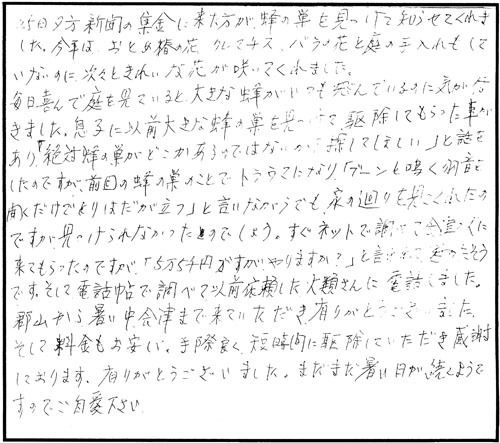 25日夕方新聞の集金に来た方が蜂の巣を見つけて知らせてくれま
した。今年は、おとめ椿の花、クレマチス、バラの花と庭の手入れもして
いないのに次々ときれいな花が咲いてくれました。
毎日喜んで庭を見ていると、大きな蜂がいつも飛んでいるのに気が付
きました。息子に以前大きな蜂の巣を見つけて駆除してもらった事が
あり「絶対蜂の巣がどこかあるのではないか、探してほしい」と話を
したのですが、前回の蜂の巣のことでトラウマになり「ブーンと鳴く羽音を
聞くだけでとりはだが立つ」と言いながらでも、家の廻りを見てくれたの
ですが見つけられなかったのでしょう。すぐネットで調べて会
来てもらったのですが、「5万5千円ですがやりますか?」と言
です。そして電話帖で調べて以前依頼した さんに電話しました。
郡山から暑い中会津まで来ていただき有りがとうございました。
そして料金もお安く、手際良く、短時間に駆除していただき感謝
しております。有りがとうございました。まだまだ暑い日が続くようで
すのでご自愛下さい